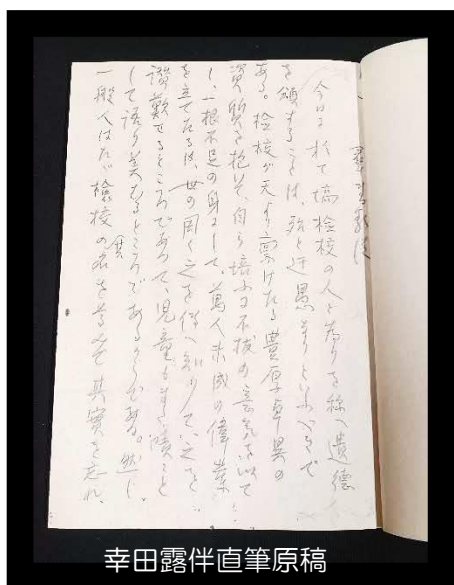 羣書類従
今日に於て塙検校の人と為りを称へ遺徳
を頌することは、殆ど迂愚なりといふべきで
ある。検校が天より稟けたる豊厚卓異の
資質を抱いて、自ら培ふに不抜の意気を以て
し、一根不足の身にして、萬人未成の偉業
を立てたるは、世の固く之を伝へ知つてゐて之を
讃歎せるところであつて、児童も亦嘖々と
して語り美むるところである。然し
一般人はたゞ檢校の名を尊んで其實を忘れ、
幸田露伴直筆原稿